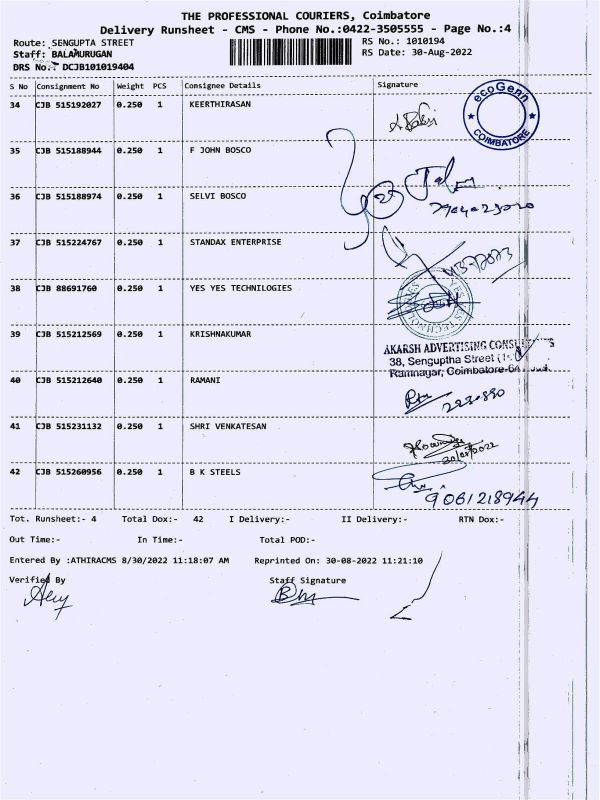 THE PROFESSIONAL COURIERS, Coimbatore
Delivery Runsheet - CMS - Phone No.:0422-3505555 - Page No.:4
Route: SENGUPTA STREET
RS No.: 1010194
Staff: BALAMURUGAN
RS Date: 30-Aug-2022
DRS No.: DCJB101019404
S No Consignment No Weight PCS Consignee Details Signature
34 CJB 515192027 0.250 1 KEERTHIRASAN
ecoGenn
COIMBATORE
35 CJB 515188944 0.250 1 F JOHN BOSCO
36 CJB 515188974 0.250 1 SELVI BOSCO
37 CJB 515224767 0.250 1 STANDAX ENTERPRISE
38 CJB 88691760 0.250 1 YES YES TECHNILOGIES
39 CJB 515212569 0.250 1 KRISHNAKUMAR
AKARSH ADVERTISING
38, Senguptha Street
Ramnagar, Coimbatore
40 CJB 515212640 0.250 1 RAMANI
41 CJB 515231132 0.250 1 SHRI VENKATESAN
42 CJB 515260956 0.250 1 B K STEELS
9061218944
Tot. Runsheet:- 4 Total Dox:- 42 I Delivery:- II Delivery:- RTN Dox:-
Out Time:- In Time:- Total POD:-
Entered By :ATHIRACMS 8/30/2022 11:18:07 AM Reprinted On: 30-08-2022 11:21:10
Verified By Staff Signature